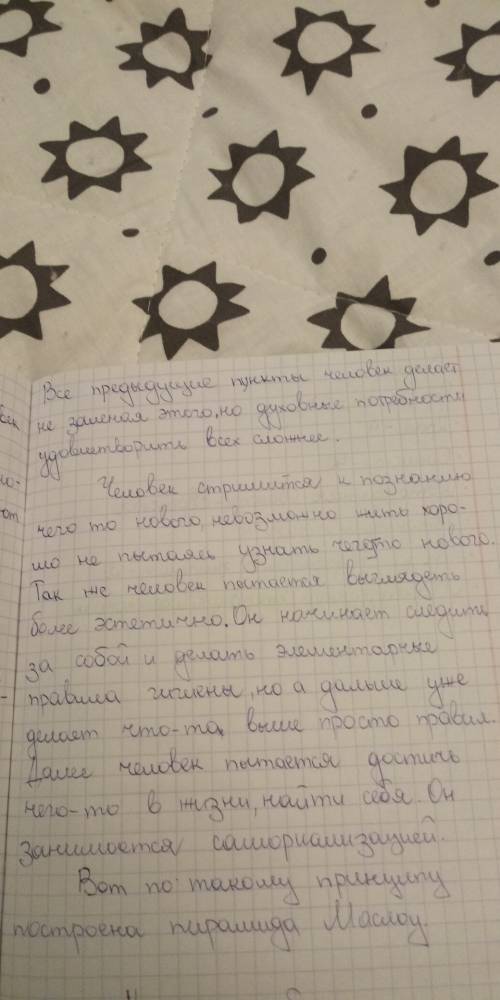 Все предыдущие пункты человек делает
не замечая этого, но духовные потребности
удовлетворить всех сложнее.
Человек стримится к познанию
чего то нового, невозможно жить хоро-
шо не пытаясь узнать чегото нового.
Так же человек пытается выглядеть
более эстетично. Он начинает следить
за собой и делать элементарные
правила гигиены, но а дальше уже
делает что-то выше просто правил.
Далее человек пытается достичь
чего-то в жизни, найти себя. Он
занимается самориализацией.
Вот по такому принципу
построена пирамида Маслоу.